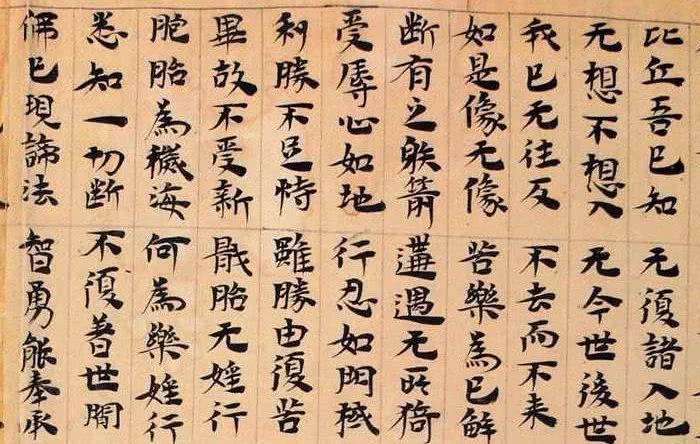 比丘吾已知 无復諸入地
无想不想入 无今世後世
我已无往反 不去而不来
如是像无像 苦樂為已解
断有之躲箭 遘遇无所猗
受辱心如地 行忍如門棫
利勝不足恃 雖勝由復苦
畢故不受新 厭胎无婬行
胞胎為穢海 何為樂婬行
悉知一切断 不復著世間
佛已現諦法 智勇能奉承